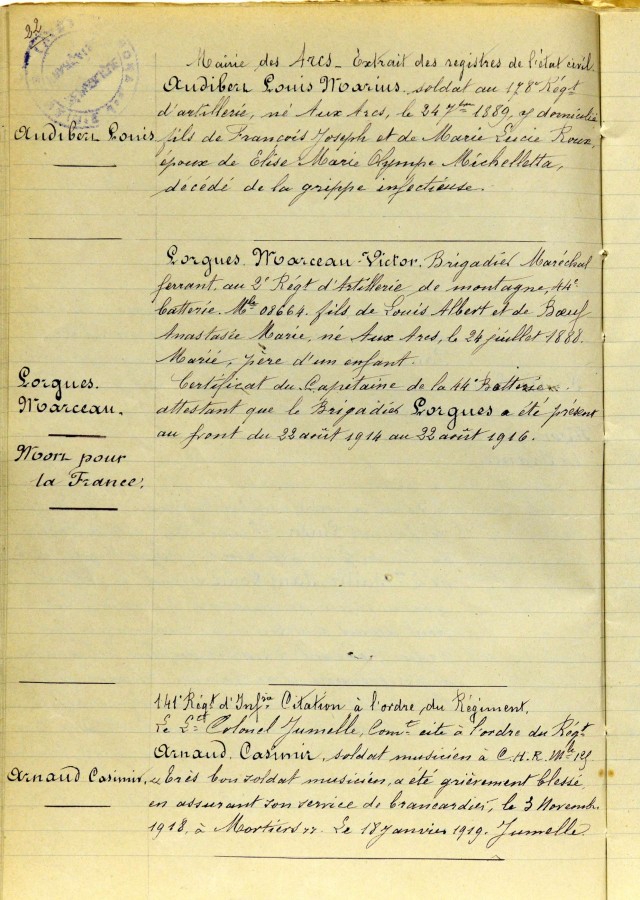 22
Mairie des Arcs _ Extrait des registres de l'état civil.
Audibert Louis Marius, soldat au 178e Régt
d'artillerie, né Aux Arcs, le 24 7bre 1889, y domicilié
Audibert Louis
fils de François Joseph et de Marie Lucie Roux,
époux de Elise Marie Olympe Micheletta,
décédé de la grippe infectieuse.
Lorgues Marceau-Victor. Brigadier Maréchal
ferrant au 2e Régt d'Artillerie de montagne, 44e
batterie. Mle 08664. fils de Louis Albert et de Bœuf
Anastasie Marie, né Aux Arcs, le 24 juillet 1888.
Marié, père d'un enfant.
Lorgues
Marceau.
Certificat du Capitaine de la 44e Batterie
attestant que le Brigadier Lorgues a été présent
au front du 22 août 1914 au 22 août 1916.
Mort pour
la France.
141e Régt d'Infrie Citation à l'ordre du Régiment.
Le Lt Colonel Jumelle, Comt cite à l'ordre du Régt
Arnaud Casimir, soldat musicien à C.H.R. Mle
Arnaud Casimir.
très bon soldat musicien, a été grièvement blessé
en assurant son service de brancardier, le 3 Novemb.
1918, à Mortiers ". Le 18 janvier 1919. Jumelle